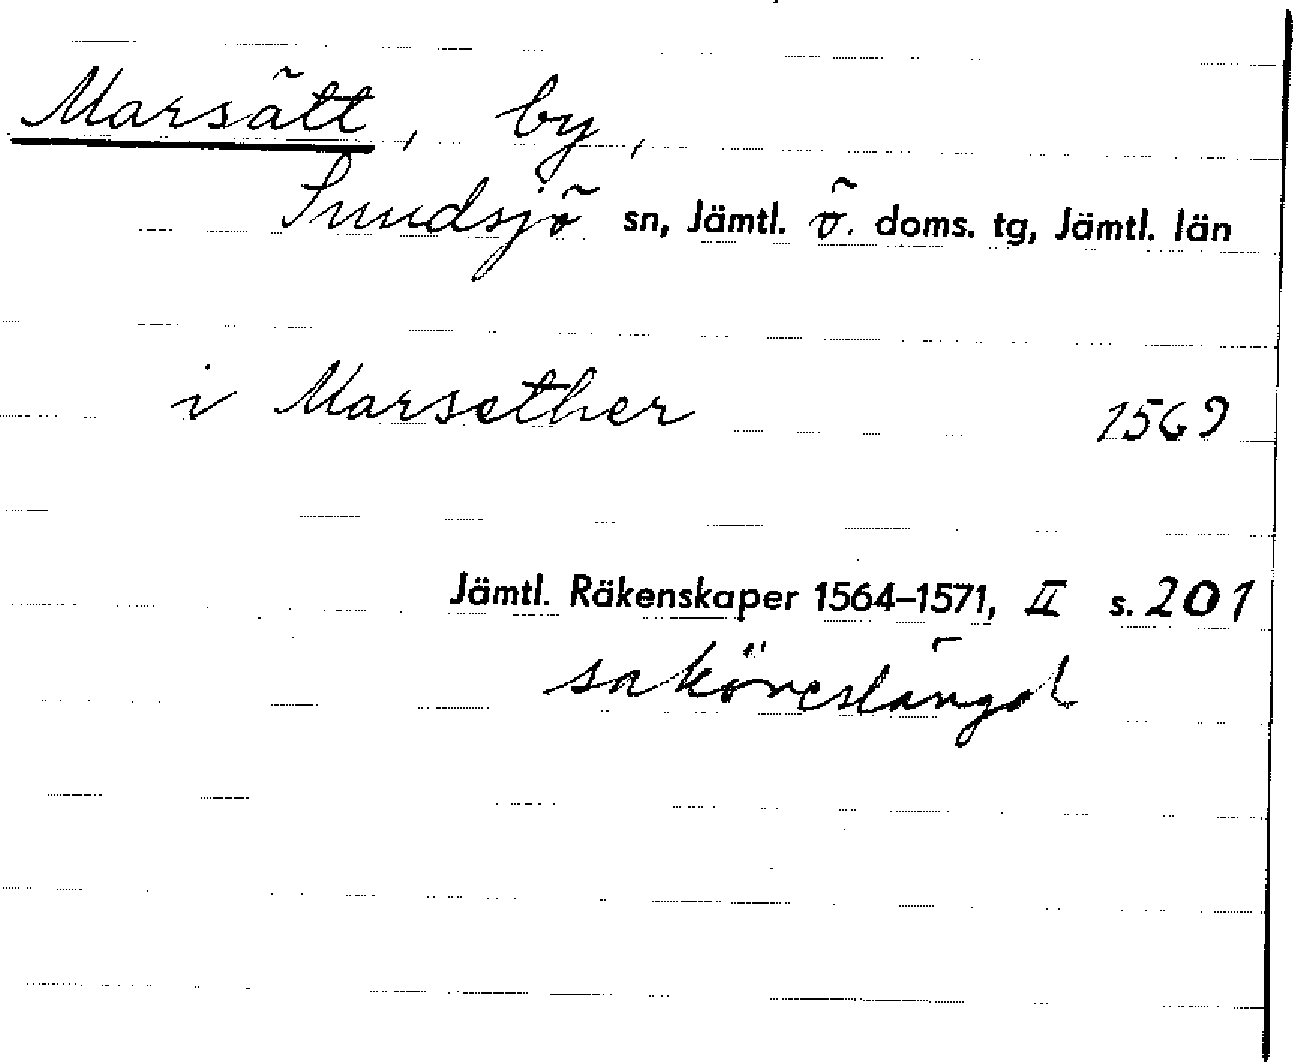 Marsätt, by,
Sundsjö sn, Jämtl. ö. doms. tg, Jämtl. län
i Marsether 1569
Jämtl. Räkenskaper 1564–1571, II s. 201
saköreslängd